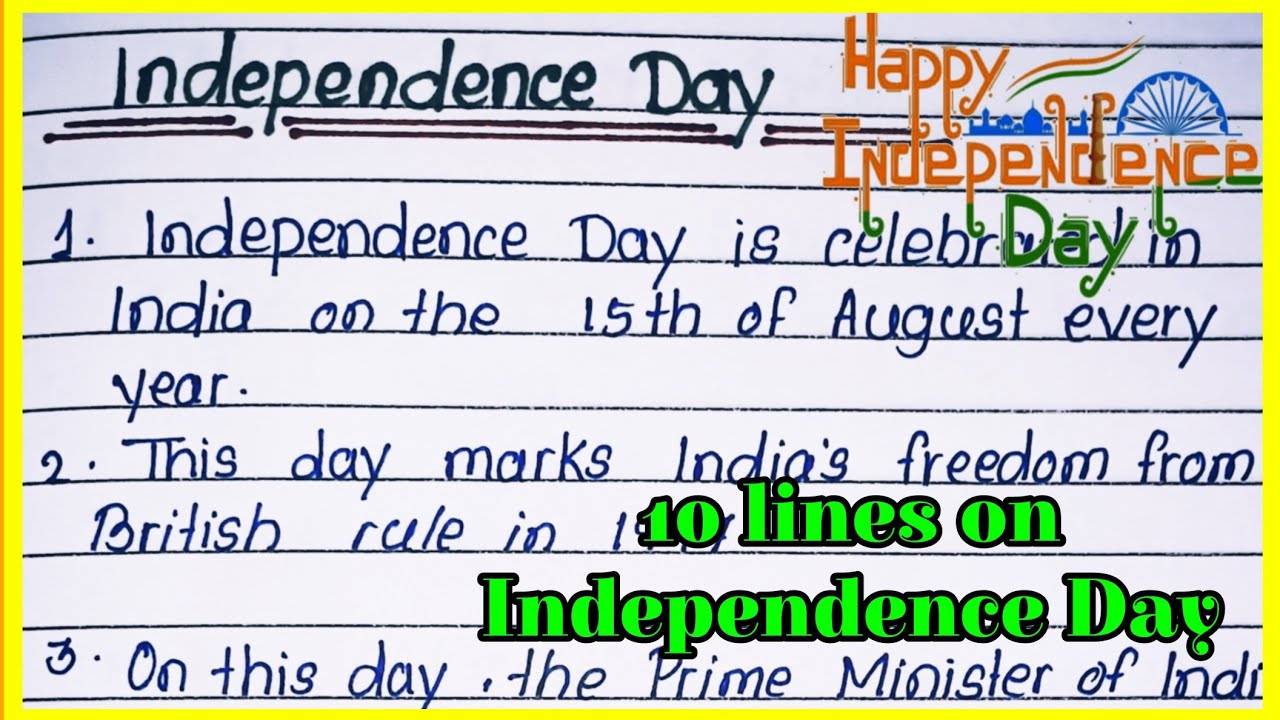 Independence Day
Happy
Independence
Day
1. Independence Day is in
India on the 15th of August every
year.
2. This day marks India's freedom from
British rule in
10 lines on
Independence Day
3. On this day, the Prime Minister of